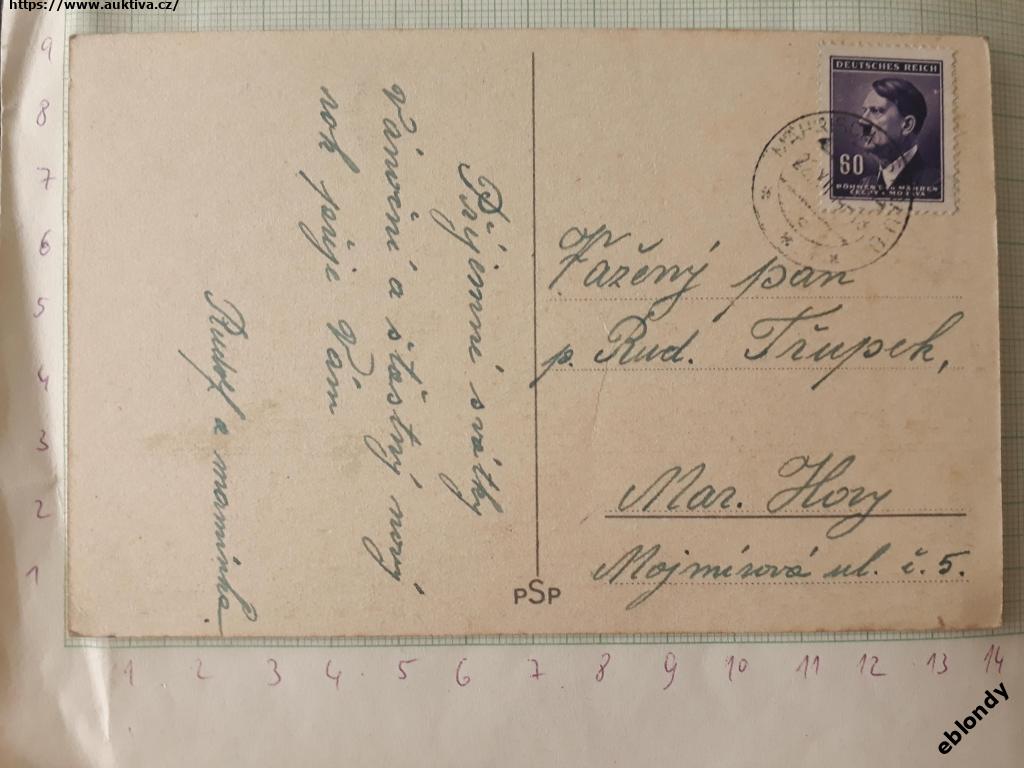 https://www.auktiva.cz/
9
8
7
6
5
4
3
2
1
Příjemné svátky
vánoční a šťastný nový
rok přeje Vám
Rudolf a maminka.
DEUTSCHES REICH
60
BÖHMEN U. MÄHREN
ČECHY A MORAVA
Vážený pan
p. Rud. Třupek,
Mar. Hory
Mojmírová ul. č. 5.
PSP
1 2 3 4 5 6 7 8 9 10 11 12 13 14
eblondy